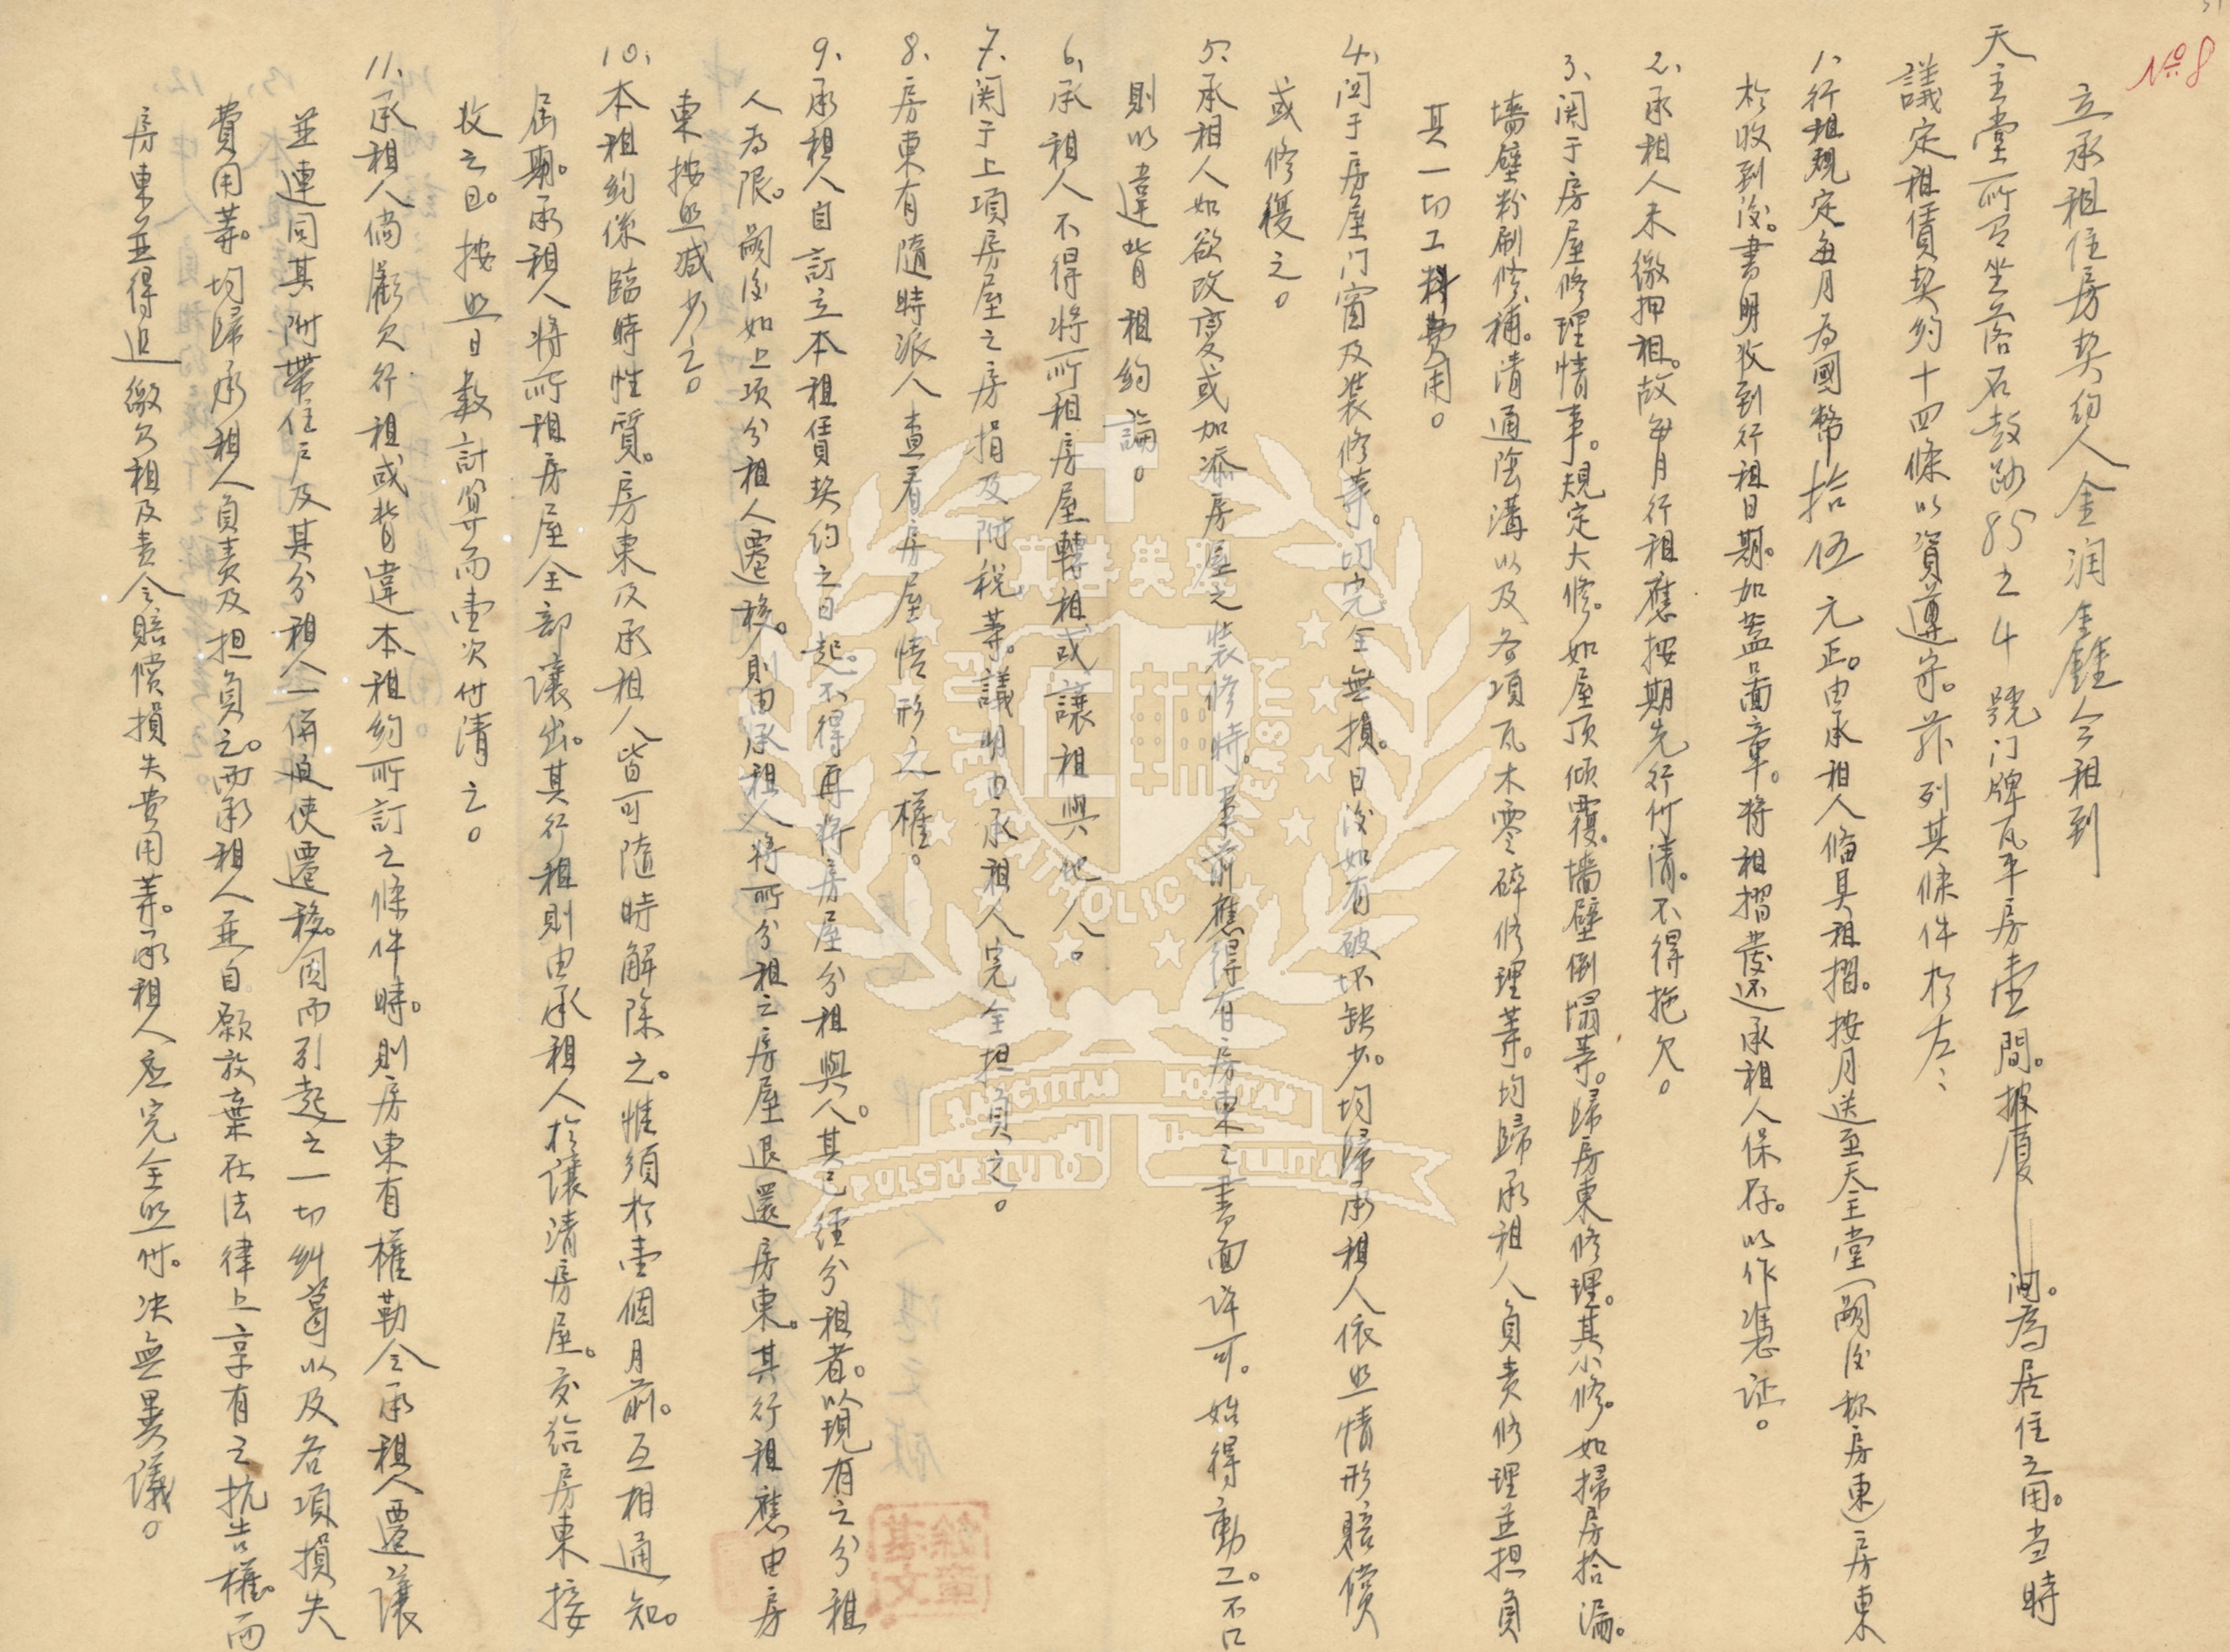 №8
立承租住房契約人金润金鑫今租到
天主堂所有坐落石鼓路85之4號门牌瓦平房壹間。披厦 間。為居住之用。当時
議定租賃契約十四條以資遵守。茲列其條件於左：
1、行租規定每月為國幣拾伍元正。由承租人偹具租摺。按月送至天主堂（嗣後称房東）房東
於收到後。書明收到行租日期。加盖圖章。將租摺發还承租人保存。以作凴证。
2、承租人未繳押租。故每月行租應按期先行付清。不得拖欠。
3、関于房屋修理情事。規定大修。如屋顶倾覆。墻壁倒塌等。歸房東修理。其小修。如掃房拾漏。
墻壁粉刷修補。清通陰溝以及各項瓦木零碎修理等。均歸承租人負责修理並担負
其一切工料費用。
4、関于房屋门窗及装修等。切完全無損。日後如有破坏缺少。均歸承租人依照情形賠償
或修復之。
5、承租人如欲改变或加添房屋之装修時。事前應得有房東之書面许可。始得動工。不口
則以違背租約論。
6、承租人不得将所租房屋轉租或讓租與他人。
7、関于上項房屋之房捐及附税等。議明由承租人完全担負之。
8、房東有隨時派人查看房屋情形之權。
9、承租人自訂立本租賃契约之日起。不得再将房屋分租與人。其已經分租者。以現有之分租
人為限。嗣後如上项分租人遷移。則由承租人将所分租之房屋退還房東。其行租應由房
東按照减少之。
10、本租約係臨時性質。房東及承租人皆可隨時解除之。惟須於壹個月前。互相通知。
屆期。承租人将所租房屋全部讓出。其行租則由承租人於讓清房屋。交給房東接
收之日。按照日数計算而壹次付清之。
11、承租人倘虧欠行租或背違本租約所訂之條件時。則房東有權勒令承租人遷讓
並連同其附帶住户及其分租人一併迫使遷移。因而引起之一切糾葛以及各項損失
費用等。均歸承租人負责及担負之。而承租人並自願放棄在法律上享有之抗告權。而
房東並得追繳欠租及责令賠償損失費用等。承租人应完全照付。决無異議。